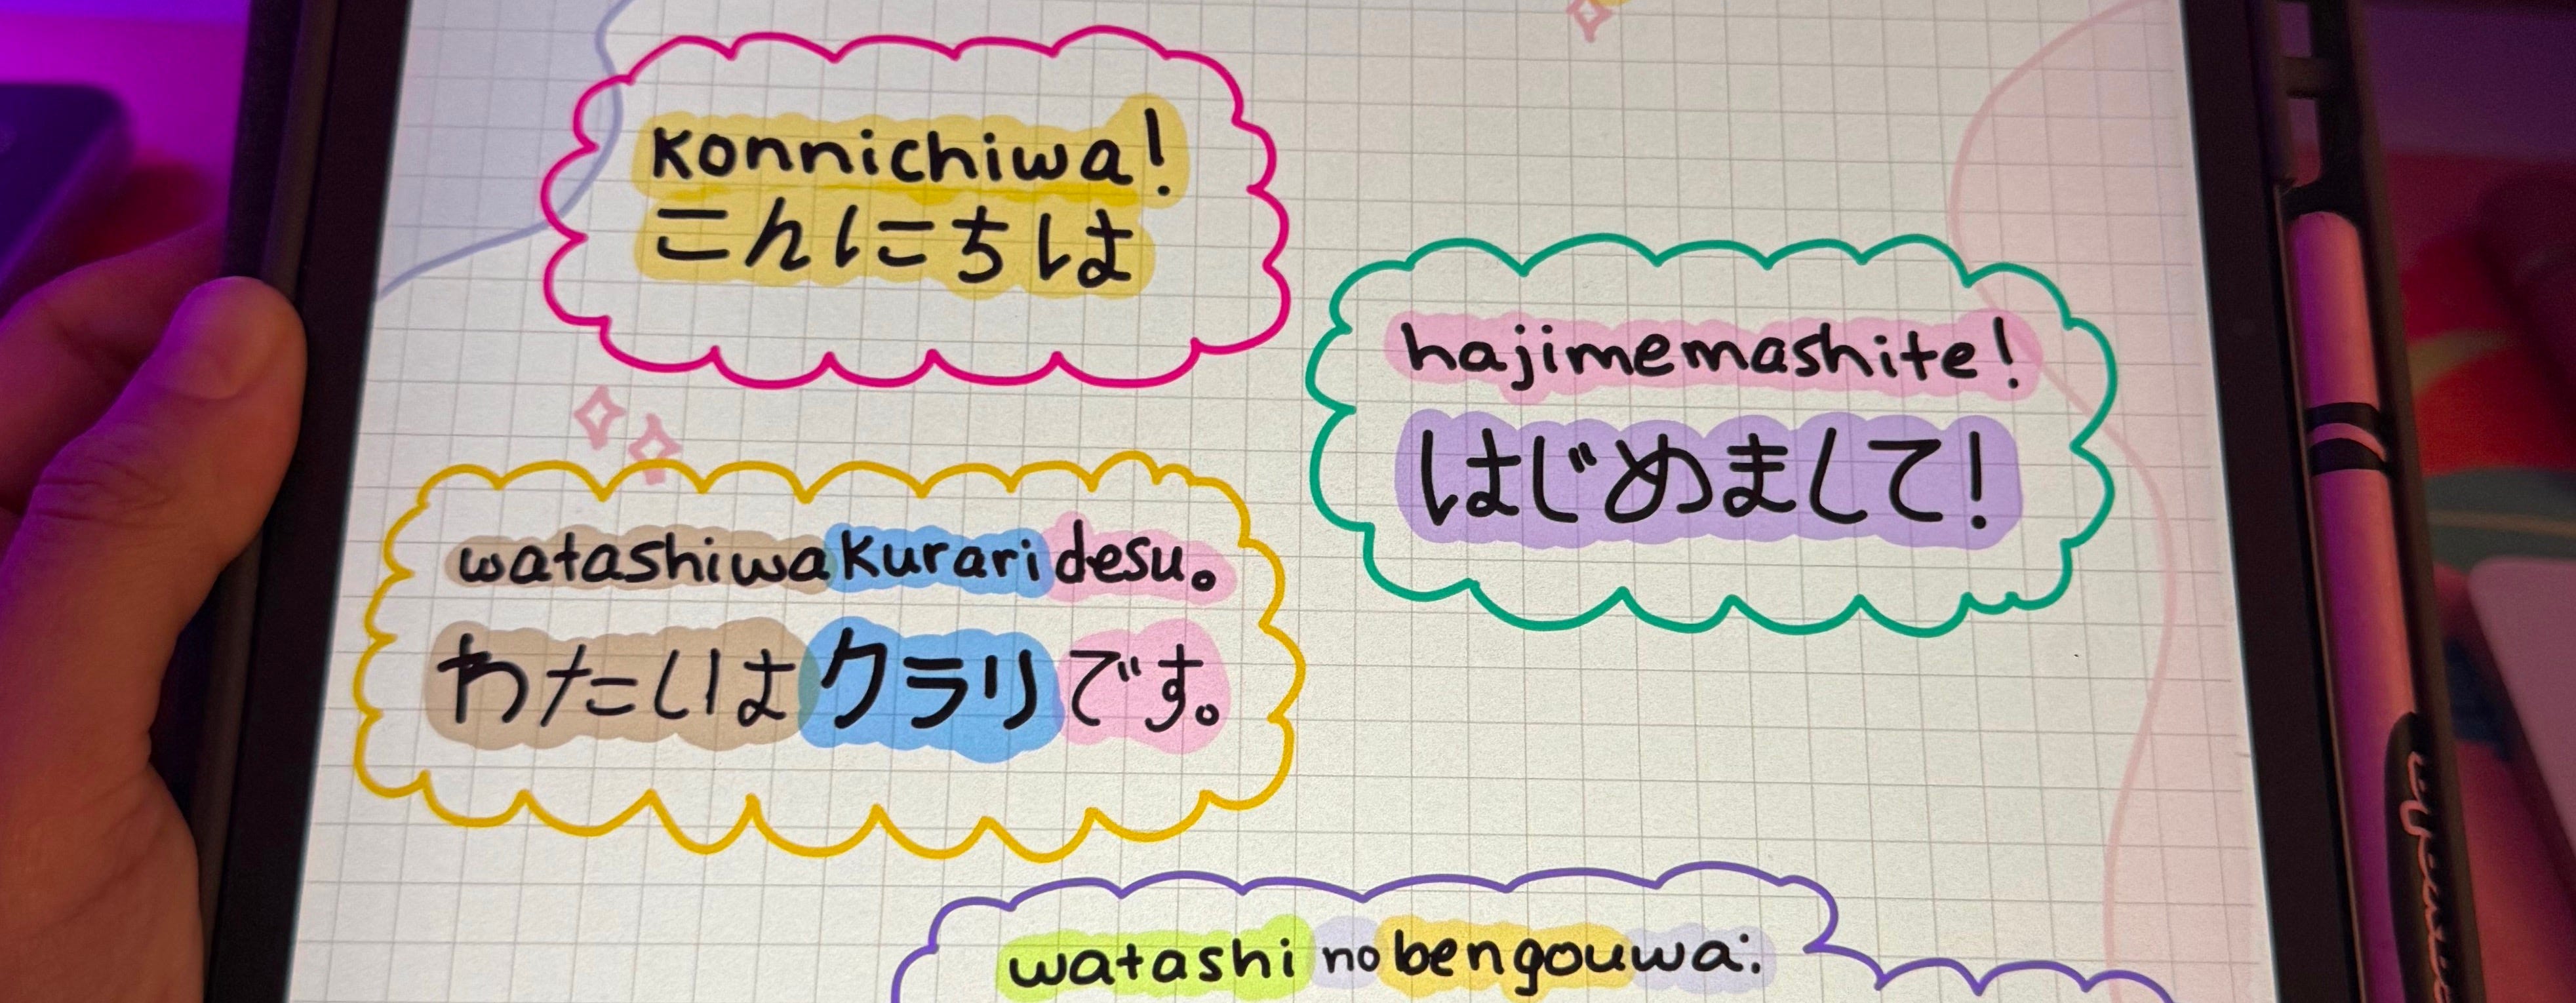 konnichiwa!
こんにちは
hajimemashite!
はじめまして!
watashiwakuraridesu。
わたしはクラリです。
watashi no bengouwa: